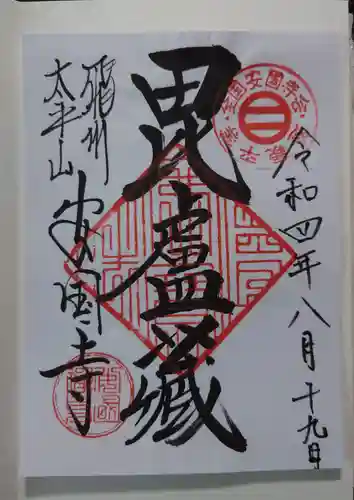 令和四年八月十九日
毘盧藏
飛州
太平山
安国寺
全国安国寺会